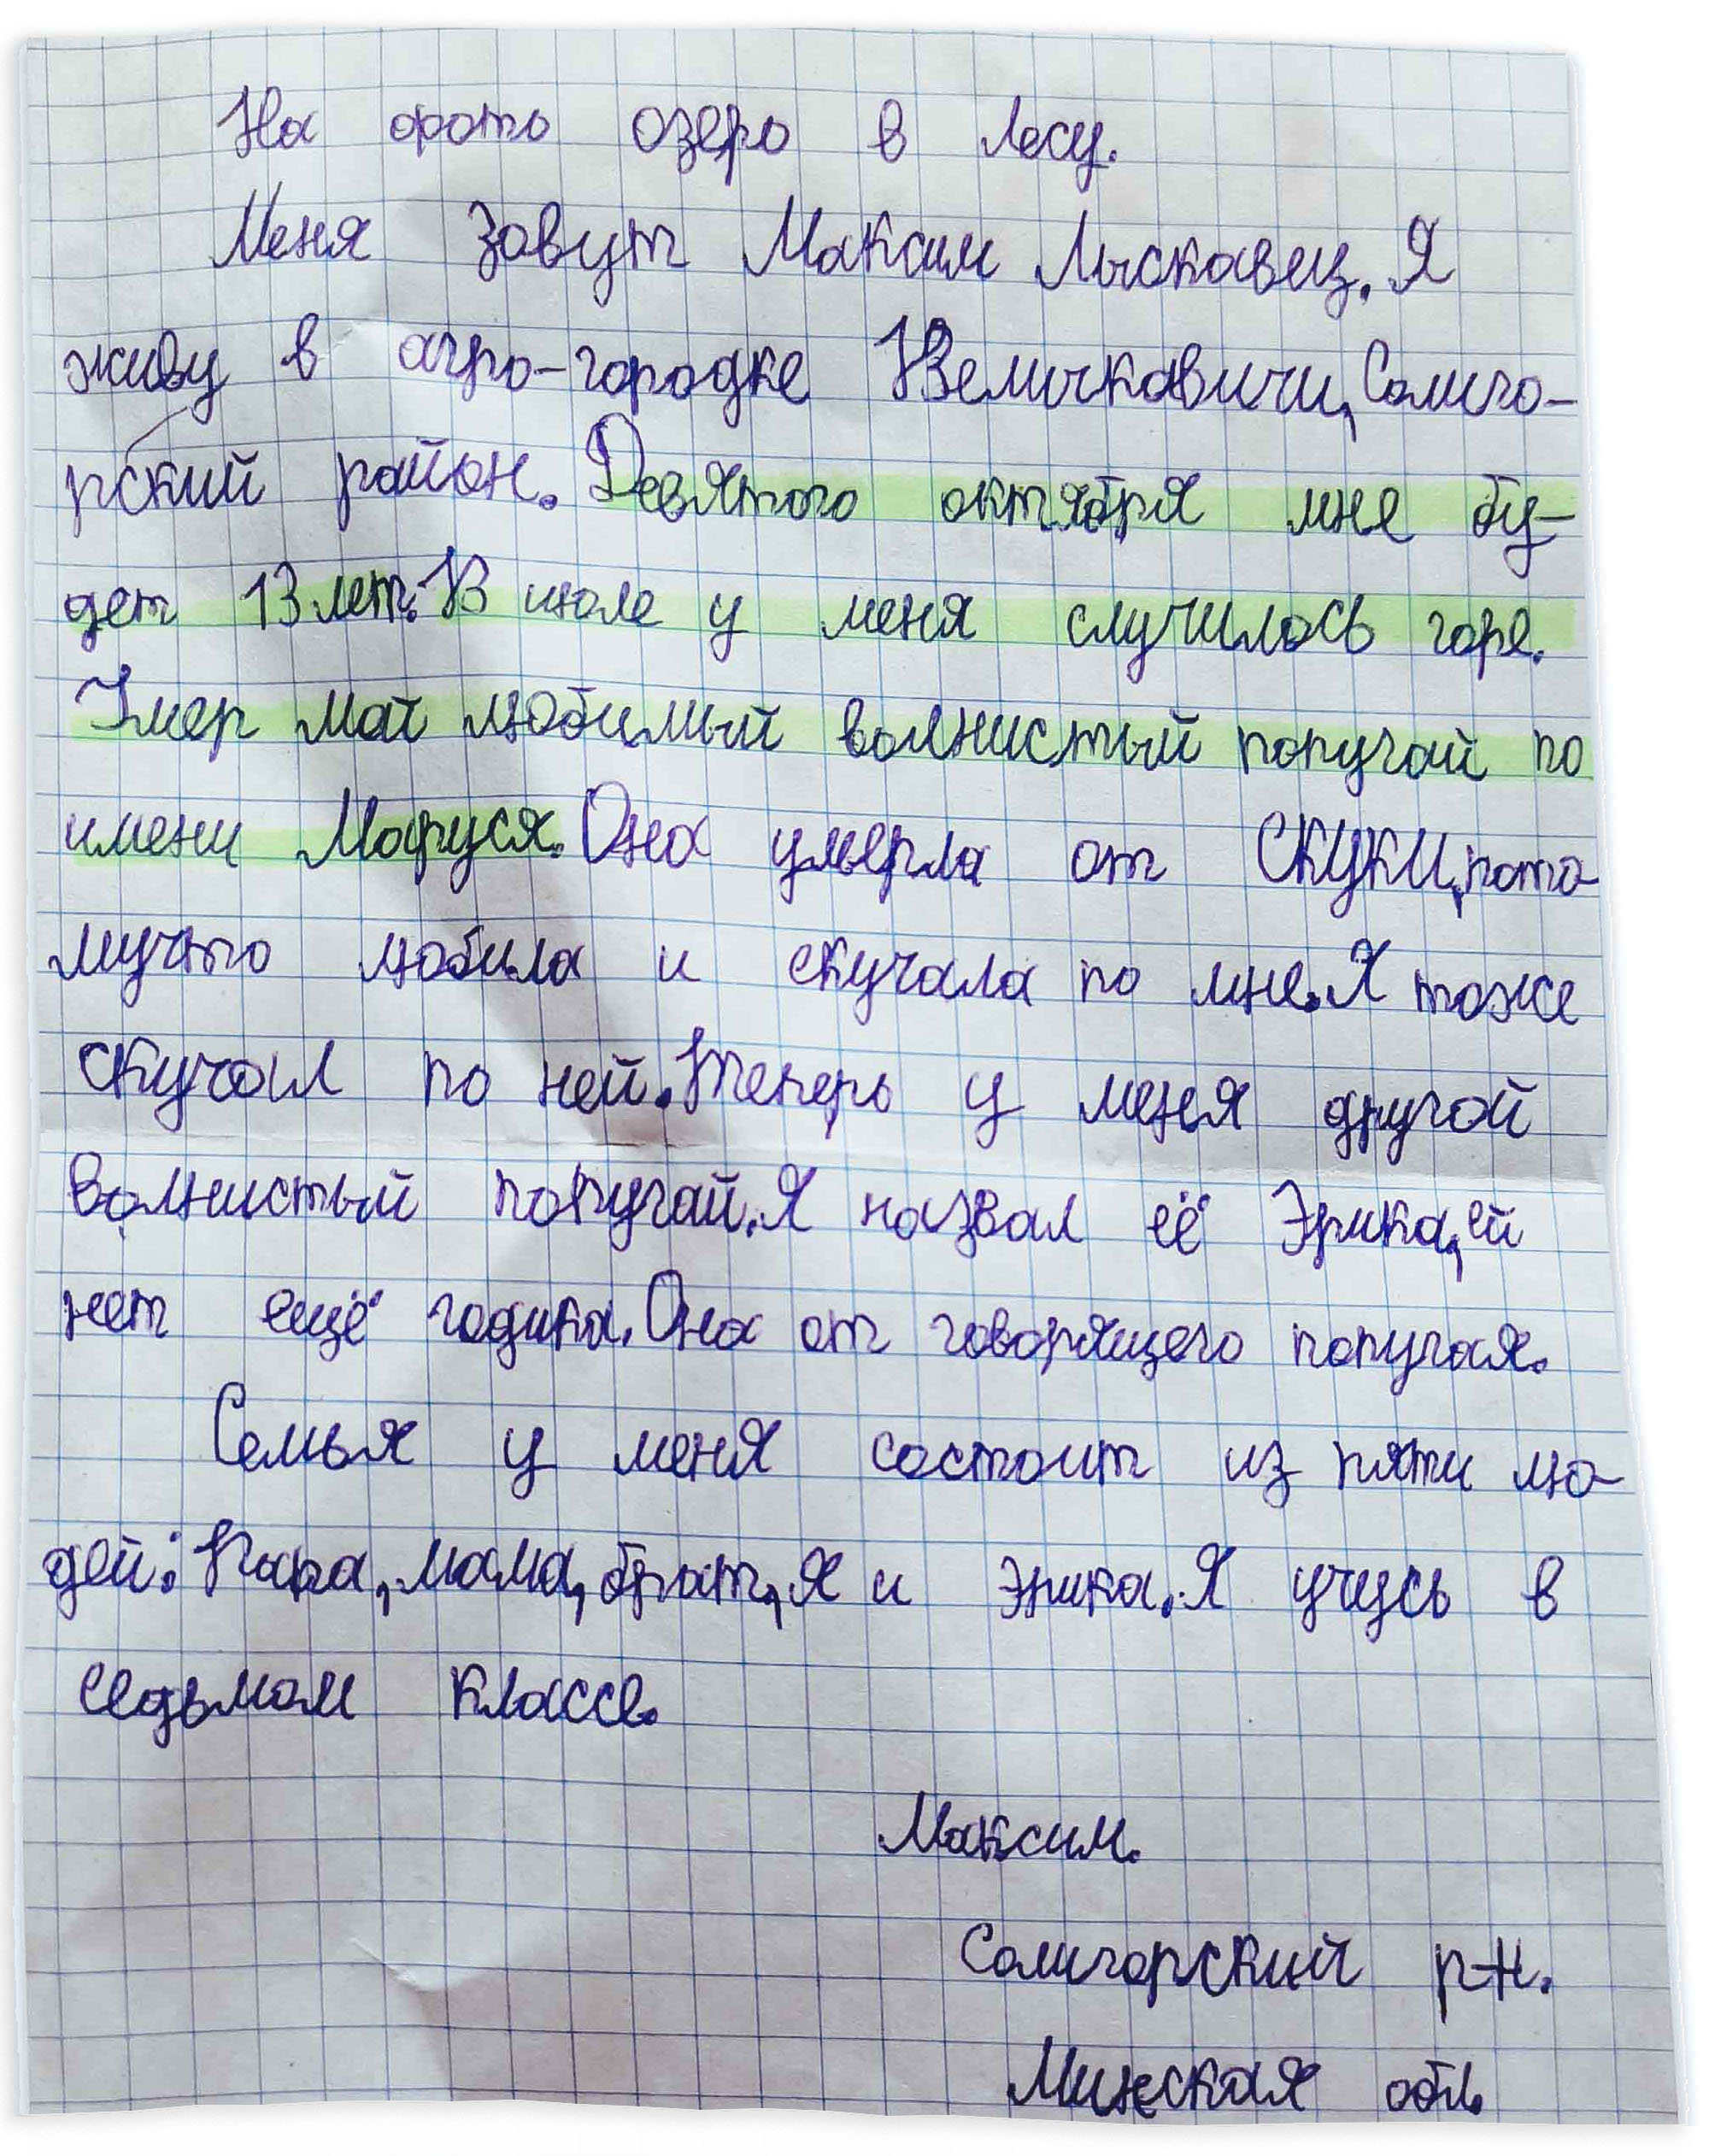 На фото озеро в лесу.
Меня зовут Максим Лыскавец. Я
живу в агро-городке Величковичи, Солиго-
рский район. Девятого октября мне бу-
дет 13 лет. В июле у меня случилось горе.
Умер мой любимый волнистый попугай по
имени Маруся. Она умерла от скуки, пото-
мучто любила и скучала по мне. Я тоже
скучал по ней. Теперь у меня другой
волнистый попугай. Я назвал её Эрика, ей
нет ещё годика. Она от говорящего попугая.
Семья у меня состоит из пяти лю-
дей: Папа, мама, брат, я и Эрика. Я учусь в
седьмом классе.
Максим.
Солигорский р-н.
Минская обл.